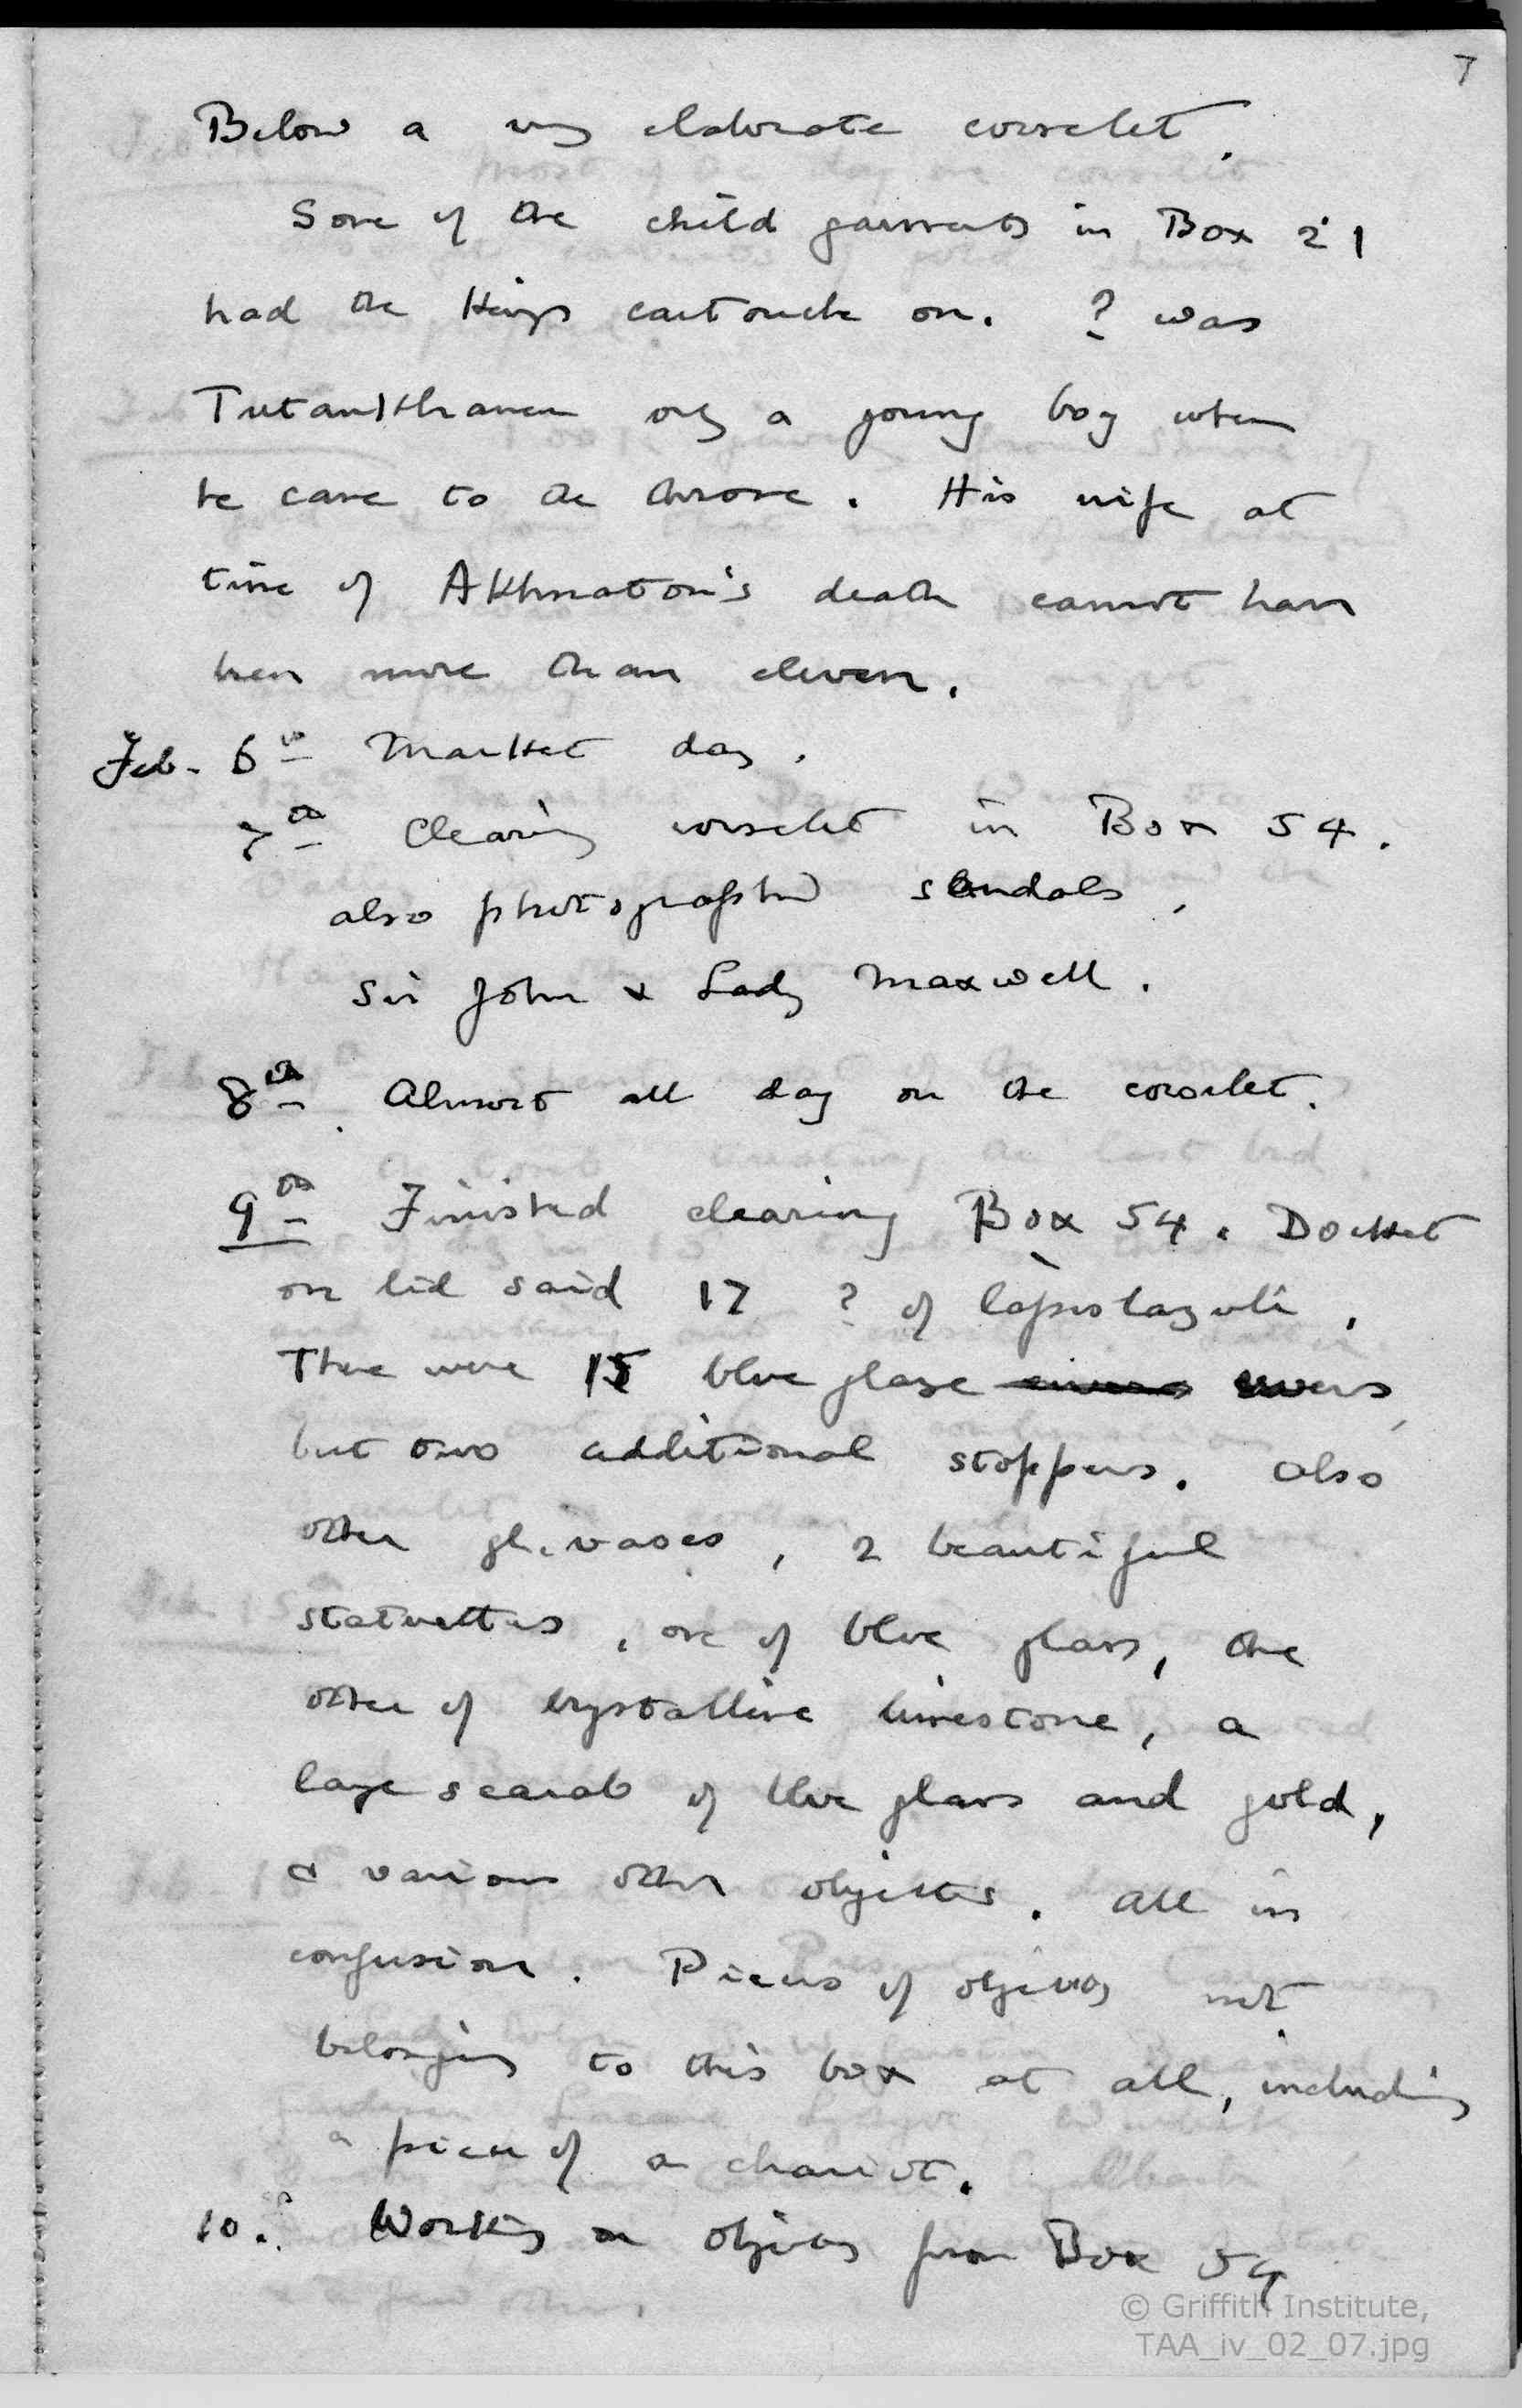 7
Below a very elaborate corselet.
Some of the child garments in Box 21
had the Kings cartouche on. ? was
Tutankhamen only a young boy when
he came to the throne. His wife at
time of Akhnaton's death cannot have
been more than eleven.
Feb. 6th Market day.
7th Clearing corselet in Box 54.
also photographed sandals,
Sir John & Lady Maxwell.
8th. Almost all day on the corselet.
9th Finished clearing Box 54. Docket
on lid said 17 ? of lapis lazuli,
There were 15 blue glaze ewers,
but two additional stoppers. Also
other gl. vases, 2 beautiful
statuettes, one of blue glass, the
other of crystalline limestone, a
large scarab of blue glass and gold,
& various other objects. All in
confusion. Pieces of objects not
belonging to this box at all, including
a piece of a chariot.
10. Working on objects from Box 54
© Griffith Institute,
TAA_iv_02_07.jpg